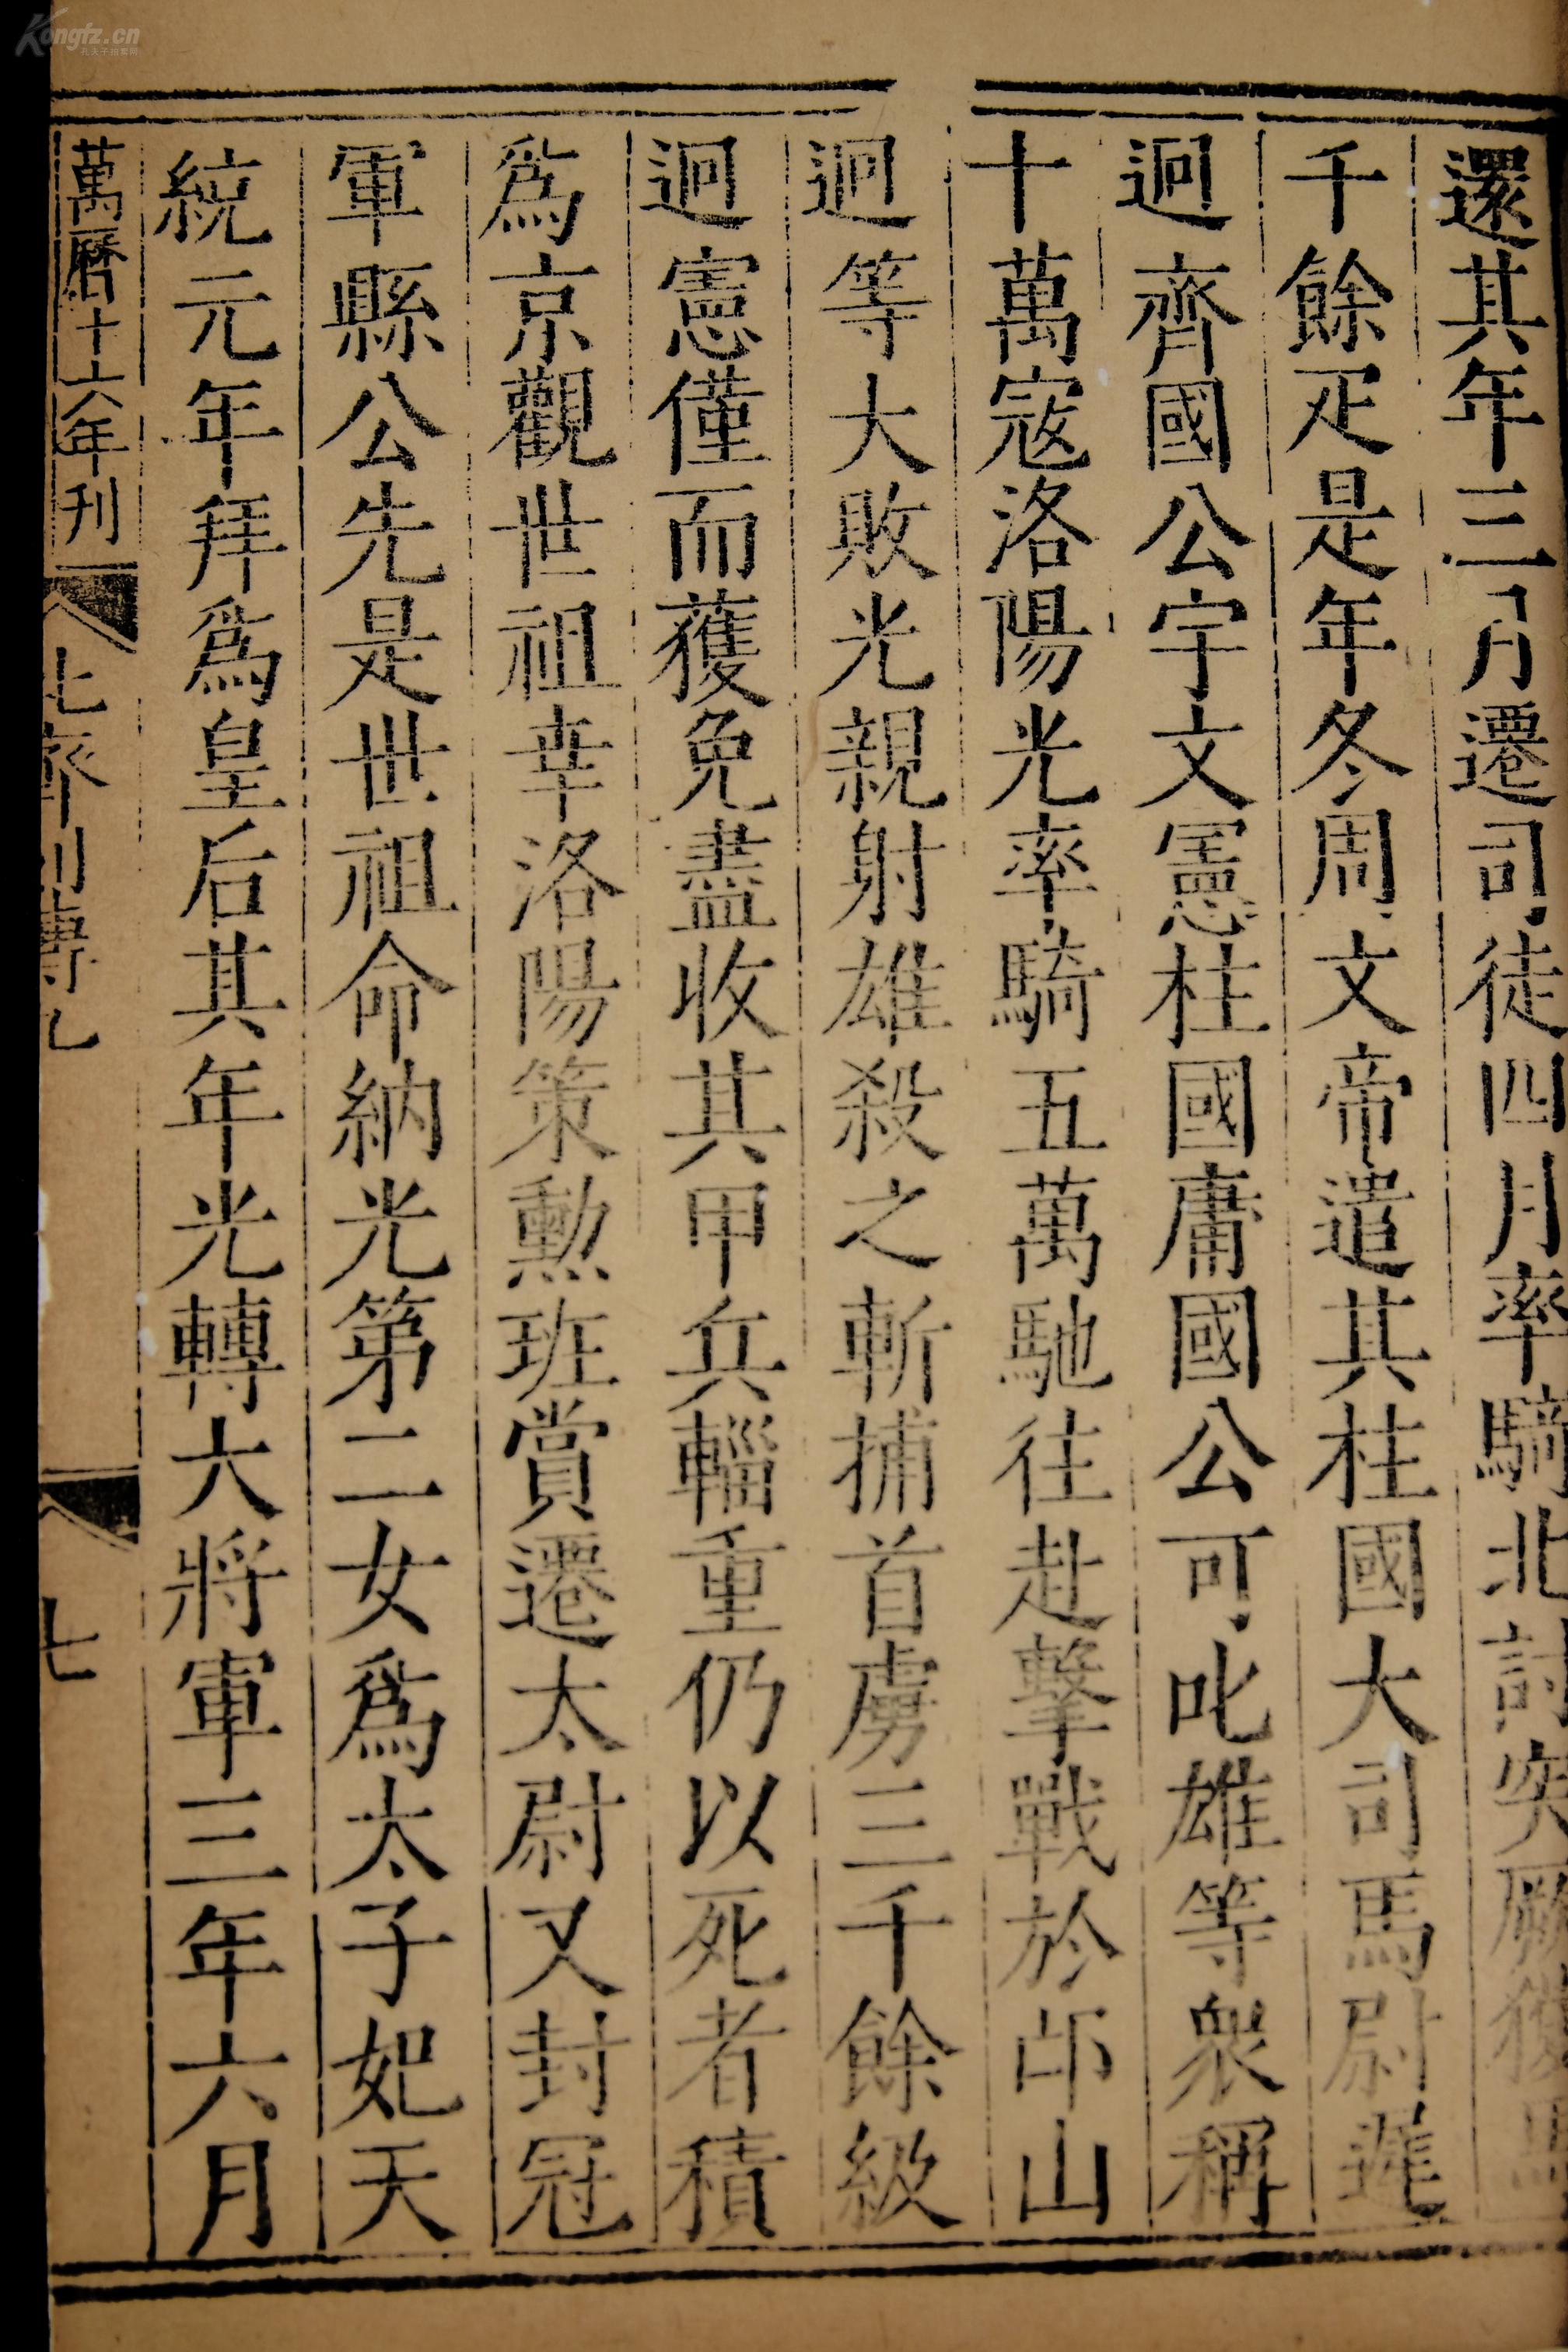 還其年三月遷司徒四月率騎北討突厥獲馬
千餘疋是年冬周文帝遣其柱國大司馬尉遲
迥齊國公宇文憲柱國庸國公可叱雄等衆稱
十萬寇洛陽光率騎五萬馳往赴擊戰於邙山
迥等大敗光親射雄殺之斬捕首虜三千餘級
迥憲僅而獲免盡收其甲兵輜重仍以死者積
爲京觀世祖幸洛陽策勲班賞遷太尉又封冠
軍縣公先是世祖命納光第二女爲太子妃天
統元年拜爲皇后其年光轉大將軍三年六月
萬曆十六年刊
北齊列傳九
七
Kongfz.cn